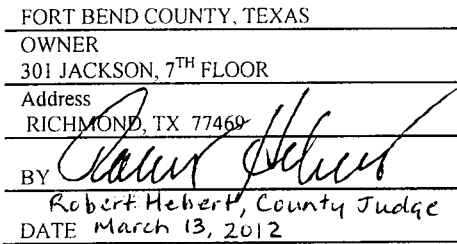 FORT BEND COUNTY, TEXAS
OWNER
301 JACKSON, 7TH FLOOR
Address
RICHMOND, TX 77469
BY Robert Hebert
Robert Hebert, County Judge
DATE March 13, 2012